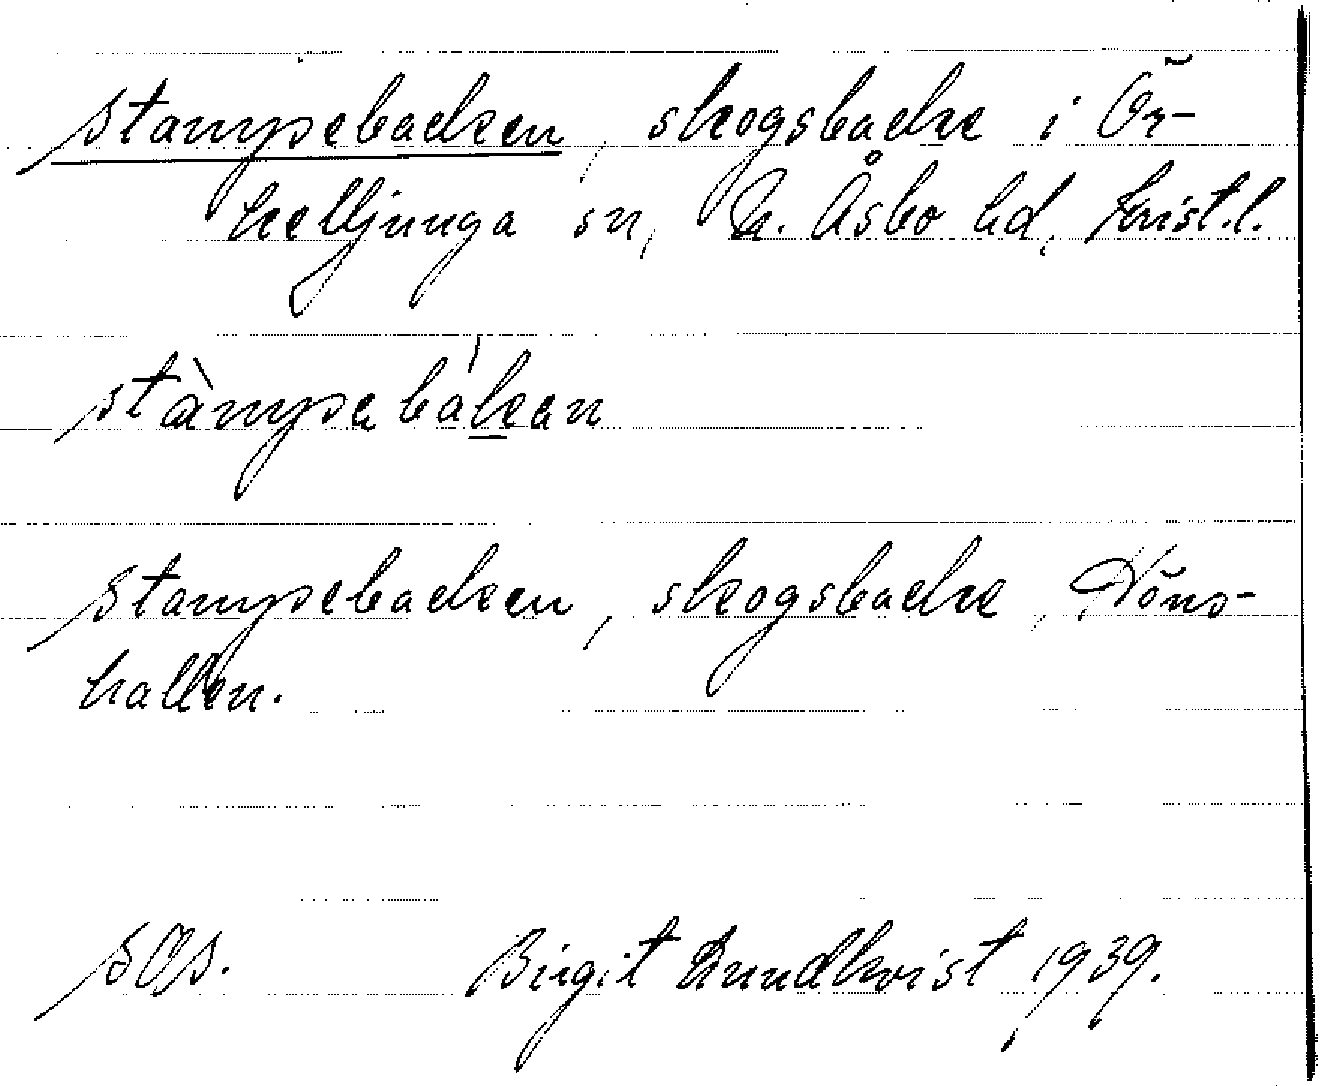 Stampebacken, skogsbacke i Ör-
kelljunga sn, N. Åsbo hd, Krist.l.
stàmpabákan
Stampebacken, skogsbacke,
hallen.
SOS. Birgit Lundkvist 1939.